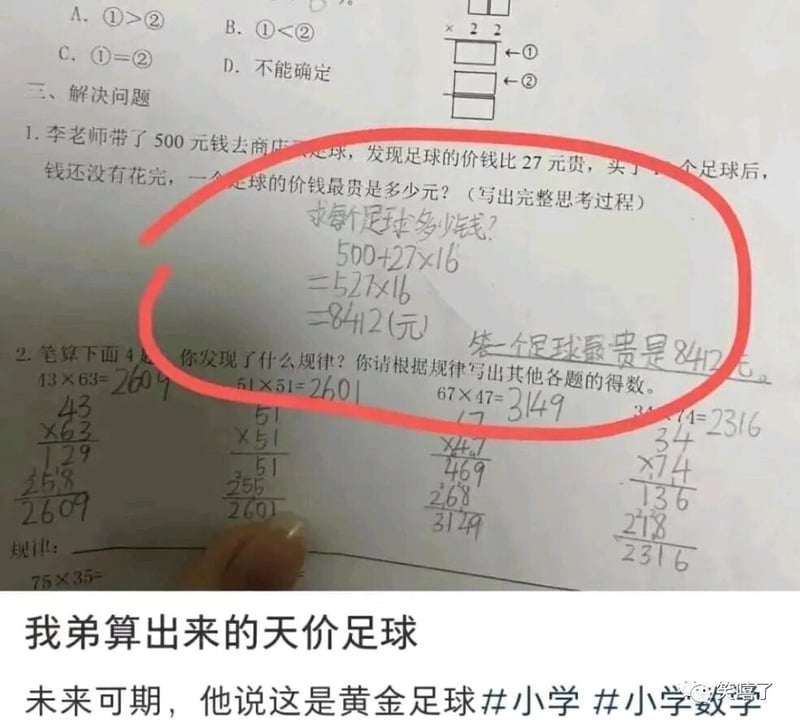 A. ①>②
B. ①<②
C. ①=②
D. 不能确定
× 2 2
←①
←②
三、解决问题
1. 李老师带了 500 元钱去商店 足球，发现足球的价钱比 27 元贵，买了 个足球后，
钱还没有花完，一个足球的价钱最贵是多少元？（写出完整思考过程）
求每个足球多少钱?
500+27×16
=527×16
=8412(元)
答一个足球最贵是8412元。
2. 笔算下面 4 你发现了什么规律？你请根据规律写出其他各题的得数。
43×63=2609
51×51=2601
67×47=3149
34×74=2316
43
×63
129
258
2609
51
×51
51
255
2601
×47
469
268
3149
34
×74
136
218
2316
规律：
75×35=
我弟算出来的天价足球
未来可期，他说这是黄金足球#小学 #小学数学
笑嘻了